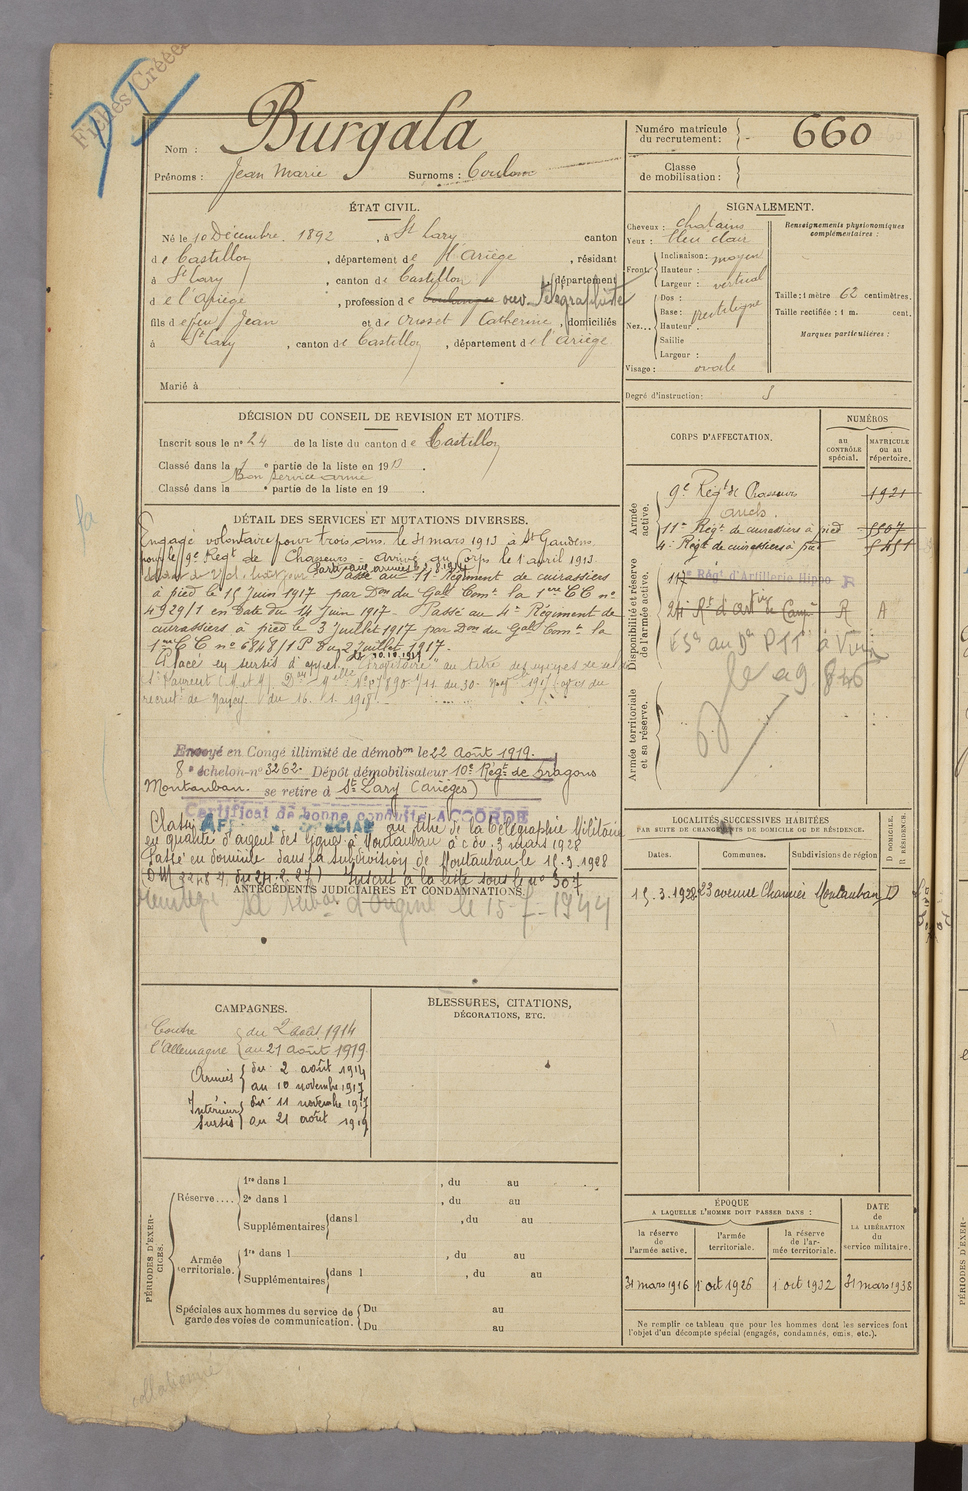 Fiches Créées
PT
Nom : Burgala
Prénoms : Jean Marie Surnoms : Coulom
Numéro matricule du recrutement : 660
Classe de mobilisation :
ÉTAT CIVIL.
Né le 10 Décembre 1892, à St Lary canton
de Castillon, département de l'Ariège, résidant
à St Lary, canton de Castillon, département
de l'Ariège, profession de ouv. Télégraphiste
fils de feu Jean et de Catherine, domiciliés
à St Lary, canton de Castillon, département de l'Ariège
Marié à
SIGNALEMENT.
Cheveux : chatains
Yeux : bleu clair
Front : Inclinaison : moyen
Hauteur :
Largeur : vertical
Nez... Dos :
Base : rectiligne
Hauteur :
Saillie
Largeur :
Visage : ovale
Renseignements physionomiques complémentaires :
Taille : 1 mètre 62 centimètres.
Taille rectifiée : 1 m. cent.
Marques particulières :
Degré d'instruction : 3
DÉCISION DU CONSEIL DE REVISION ET MOTIFS.
Inscrit sous le n° 24 de la liste du canton de Castillon
Classé dans la 1e partie de la liste en 1913.
Bon service armé
Classé dans la e partie de la liste en 19 .
DÉTAIL DES SERVICES ET MUTATIONS DIVERSES.
Engagé volontaire pour trois ans le 31 mars 1913 à St Gaudens
pour le 9e Regt de Chasseurs - arrivé au Corps le 1 avril 1913
Passé au 11e Régiment de cuirassiers
à pied le 15 Juin 1917 par Don du Gal Comt la 1ere CC n°
4929/1 en date du 14 Juin 1917 - Passé au 4e Régiment de
cuirassiers à pied le 3 Juillet 1917 par Don du Gal Comt la
1ere CC n° 6848/1 P du 2 Juillet 1917.
Placé en sursis d'appel
du 16. 1. 1918.
Envoyé en Congé illimité de démobon le 22 Août 1919.
8e échelon - n° 3262 - Dépôt démobilisateur 10e Régt de Dragons
Montauban. se retire à St Lary (Ariège)
Certificat de bonne conduite ACCORDÉ
Classé AFFECTÉ SPÉCIAL au titre de la Télégraphie Militaire
en qualité d'agent des lignes à Montauban à c du 3 mars 1928
Passé en domicile dans la subdivision de Montauban le 15.3.1928
Inscrit à la liste sous le n° 307
ANTÉCÉDENTS JUDICIAIRES ET CONDAMNATIONS.
Réintégré sa subdon d'origine le 15-7-1944
CORPS D'AFFECTATION.
NUMÉROS
au contrôle spécial.
matricule ou au répertoire.
Armée active.
9e Régt de Chasseurs 1921
11e Régt de cuirassiers à pied 5507
4e Régt de cuirassiers à pied
Disponibilité et réserve de l'armée active.
117e Régt d'Artillerie Hippo R
R A
Armée territoriale et sa réserve.
LOCALITÉS SUCCESSIVES HABITÉES
PAR SUITE DE CHANGEMENTS DE DOMICILE OU DE RÉSIDENCE.
Dates. Communes. Subdivisions de région D DOMICILE. R RÉSIDENCE.
15.3.1928 23 avenue Chamier Montauban D
CAMPAGNES.
Contre l'Allemagne { du 2 août 1914
au 21 août 1919
Armées { du 2 août 1914
au 10 novembre 1917
Intérieur sursis { du 11 novembre 1917
au 21 août 1919
BLESSURES, CITATIONS,
DÉCORATIONS, ETC.
PÉRIODES D'EXERCICES.
Réserve.... 1re dans l , du au
2e dans l , du au
Supplémentaires { dans l , du au
Armée territoriale. 1re dans l , du au
Supplémentaires { dans l , du au
Spéciales aux hommes du service de garde des voies de communication. { Du au
Du au
ÉPOQUE
A LAQUELLE L'HOMME DOIT PASSER DANS :
la réserve de l'armée active.
l'armée territoriale.
la réserve de l'armée territoriale.
DATE de LA LIBÉRATION du service militaire.
31 mars 1916 1 oct 1926 1 oct 1932 31 mars 1938
Ne remplir ce tableau que pour les hommes dont les services font
l'objet d'un décompte spécial (engagés, condamnés, omis, etc.).
collationné